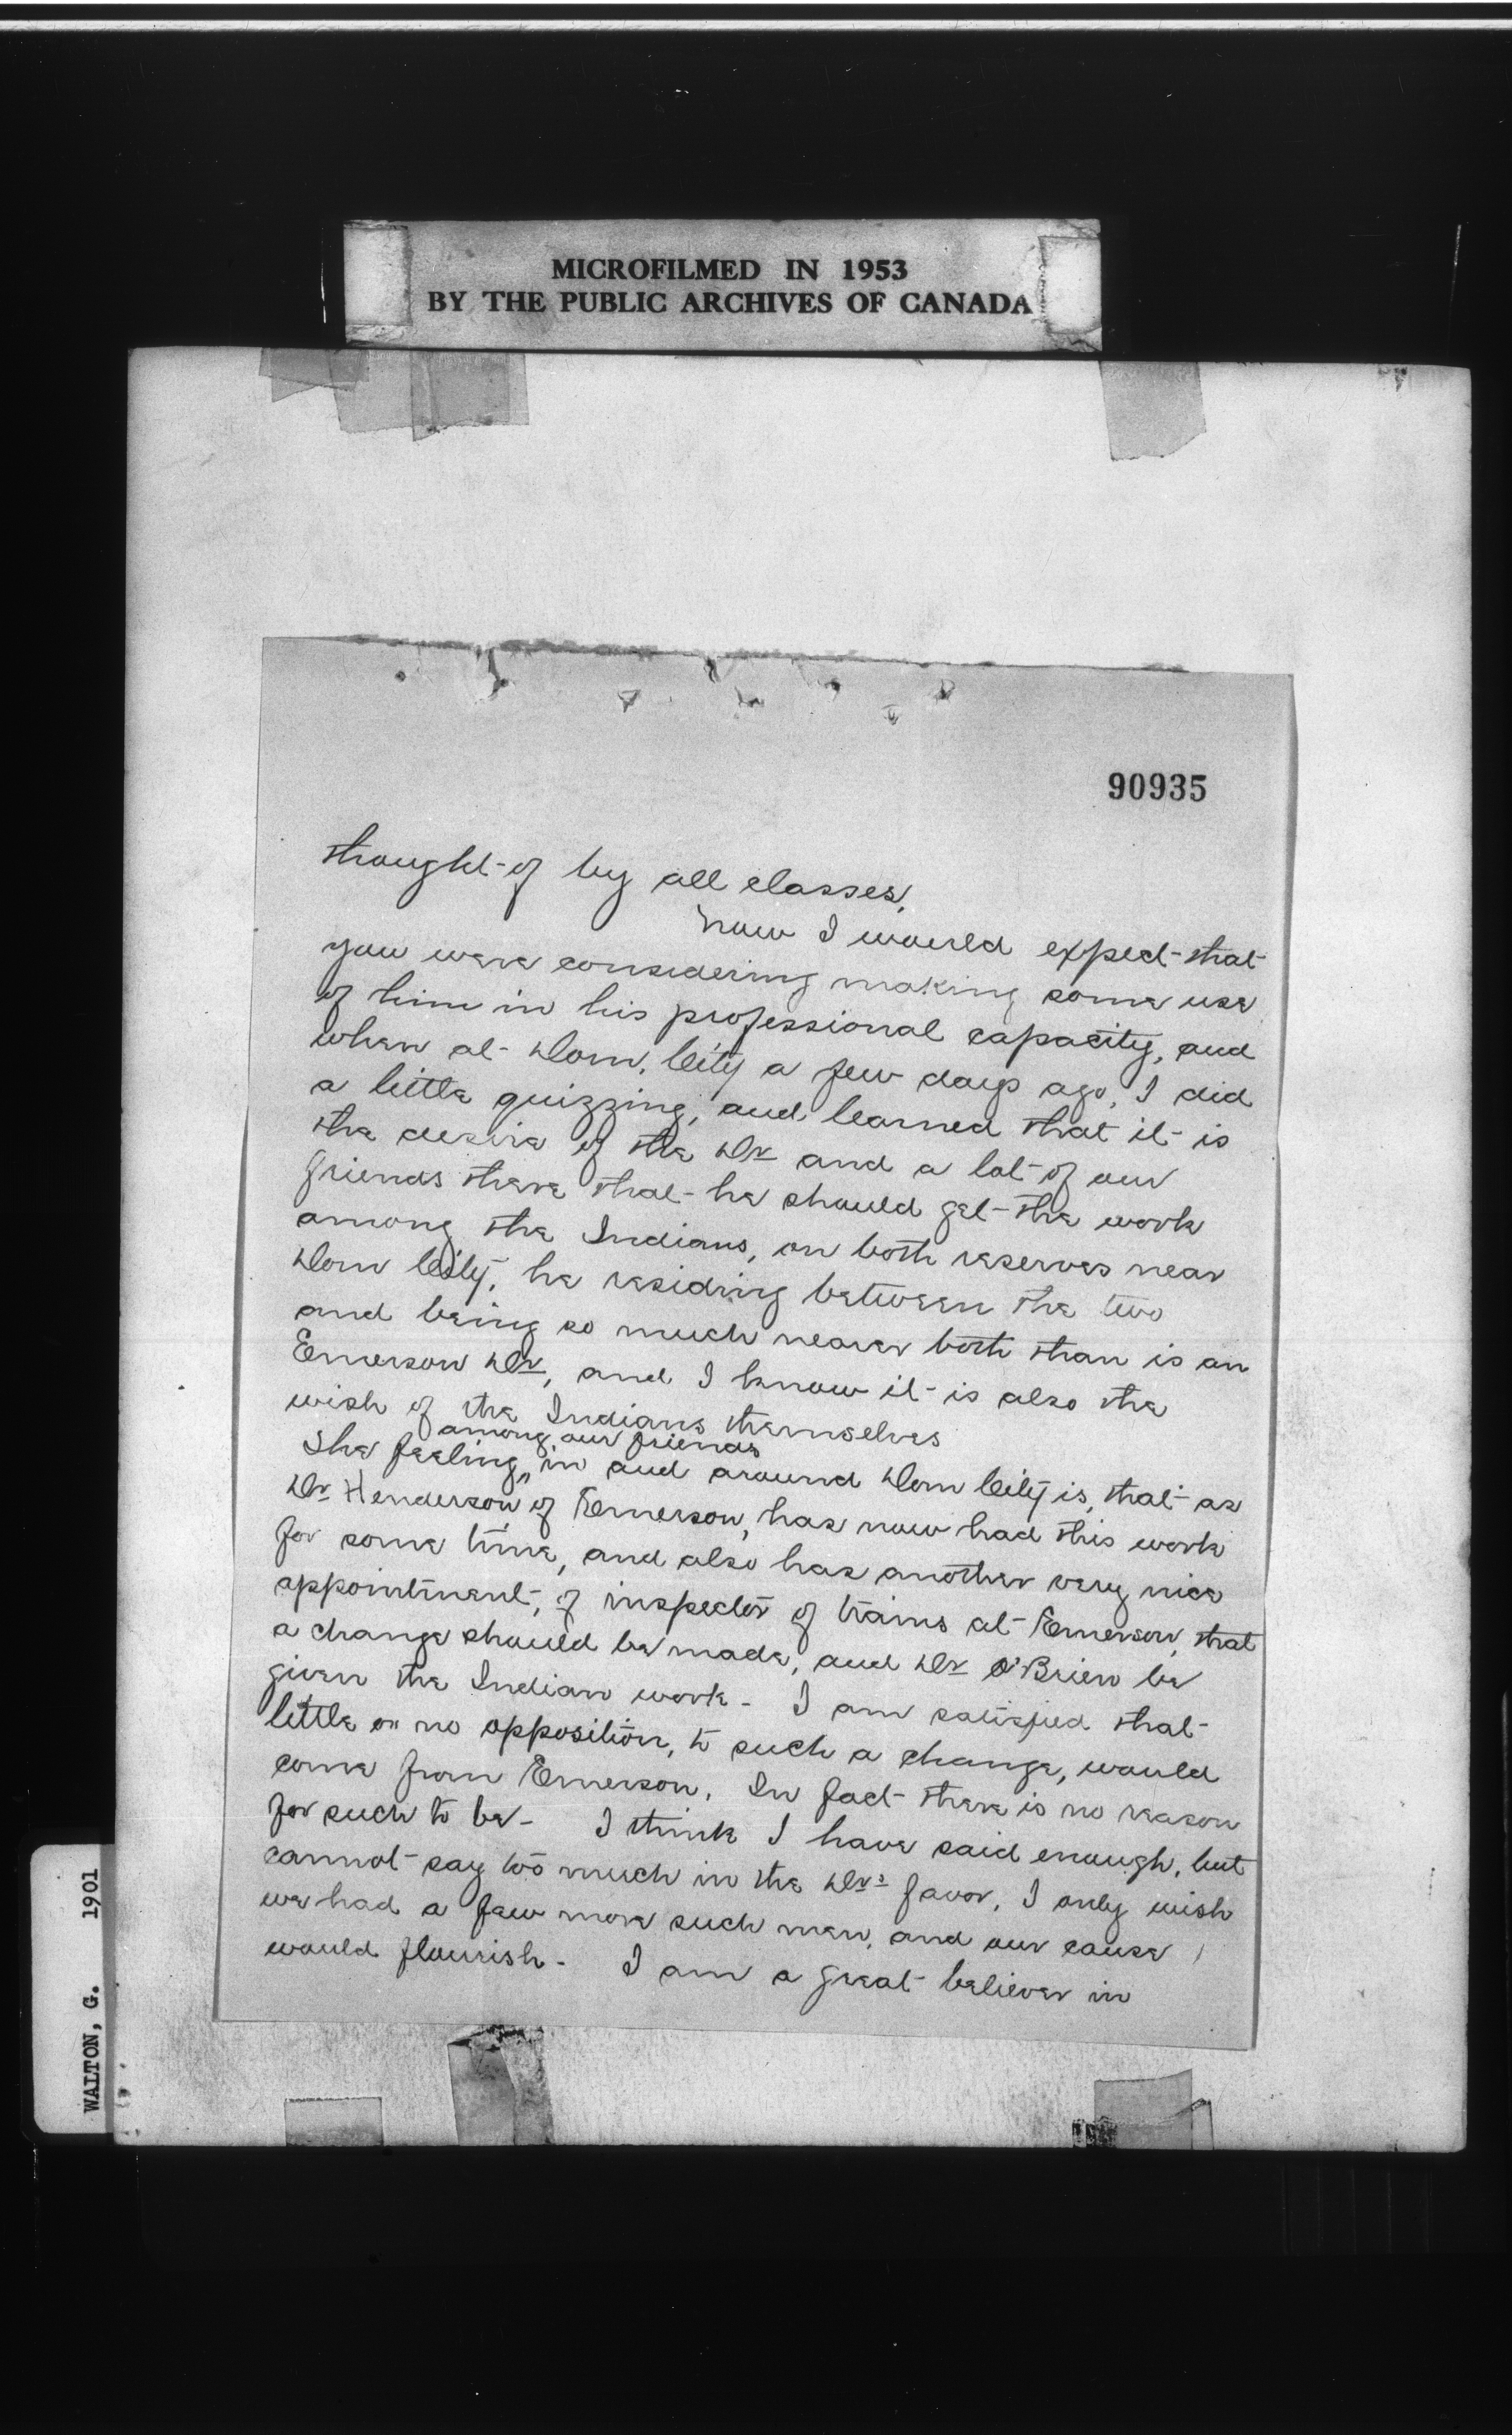 MICROFILMED IN 1953
BY THE PUBLIC ARCHIVES OF CANADA
90935
thought of by all classes.
Now I would expect that
you were considering making some use
of him in his professional capacity, and
when at Dom. City a few days ago, I did
a little quizzing, and learned that it is
the desire of the Dr and a lot of our
friends there that he should get the work
among the Indians, on both reserves near
Dom City, he residing between the two
and being so much nearer both than is an
Emerson Dr, and I know it is also the
wish of the Indians themselves
among our friends
The feeling, in and around Dom City is, that as
Dr Henderson of Emerson, has now had this work
for some time, and also has another very nice
appointment, of inspector of trains at Emerson, that
a change should be made, and Dr O'Brien be
given the Indian work - I am satisfied that
little or no opposition, to such a change, would
come from Emerson. In fact there is no reason
for such to be - I think I have said enough, but
cannot say too much in the Drs favor, I only wish
we had a few more such men, and our cause
would flourish - I am a great believer in
WALTON, G. 1901